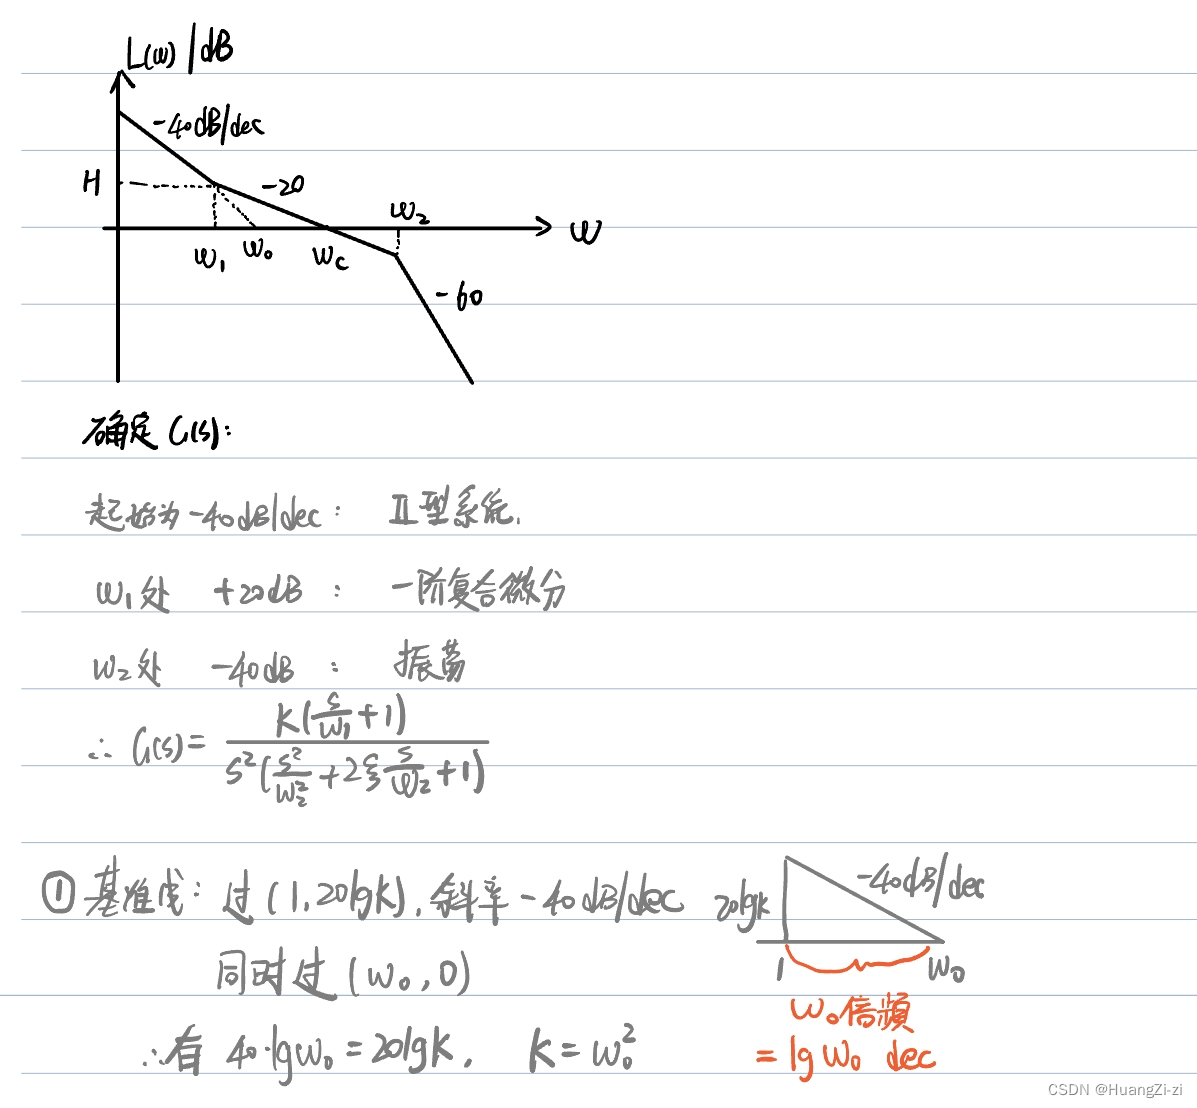 L(ω)/dB
-40dB/dec
H
-20
ω₂
ω
ω₁ ω₀ ωc
-60
确定G(s):
起始为-40dB/dec: Ⅱ型系统.
ω₁处 +20dB : 一阶复合微分
ω₂处 -40dB : 振荡
∴ G(s)= K(s/ω₁+1) / s²(s²/ω₂²+2ξs/ω₂+1)
①基准线: 过(1,20lgK),斜率-40dB/dec
同时过(ω₀,0)
∴有 40·lgω₀=20lgK, K=ω₀²
-40dB/dec
20lgK
1 ω₀
ω₀倍频
=lgω₀ dec
CSDN @HuangZi-zi